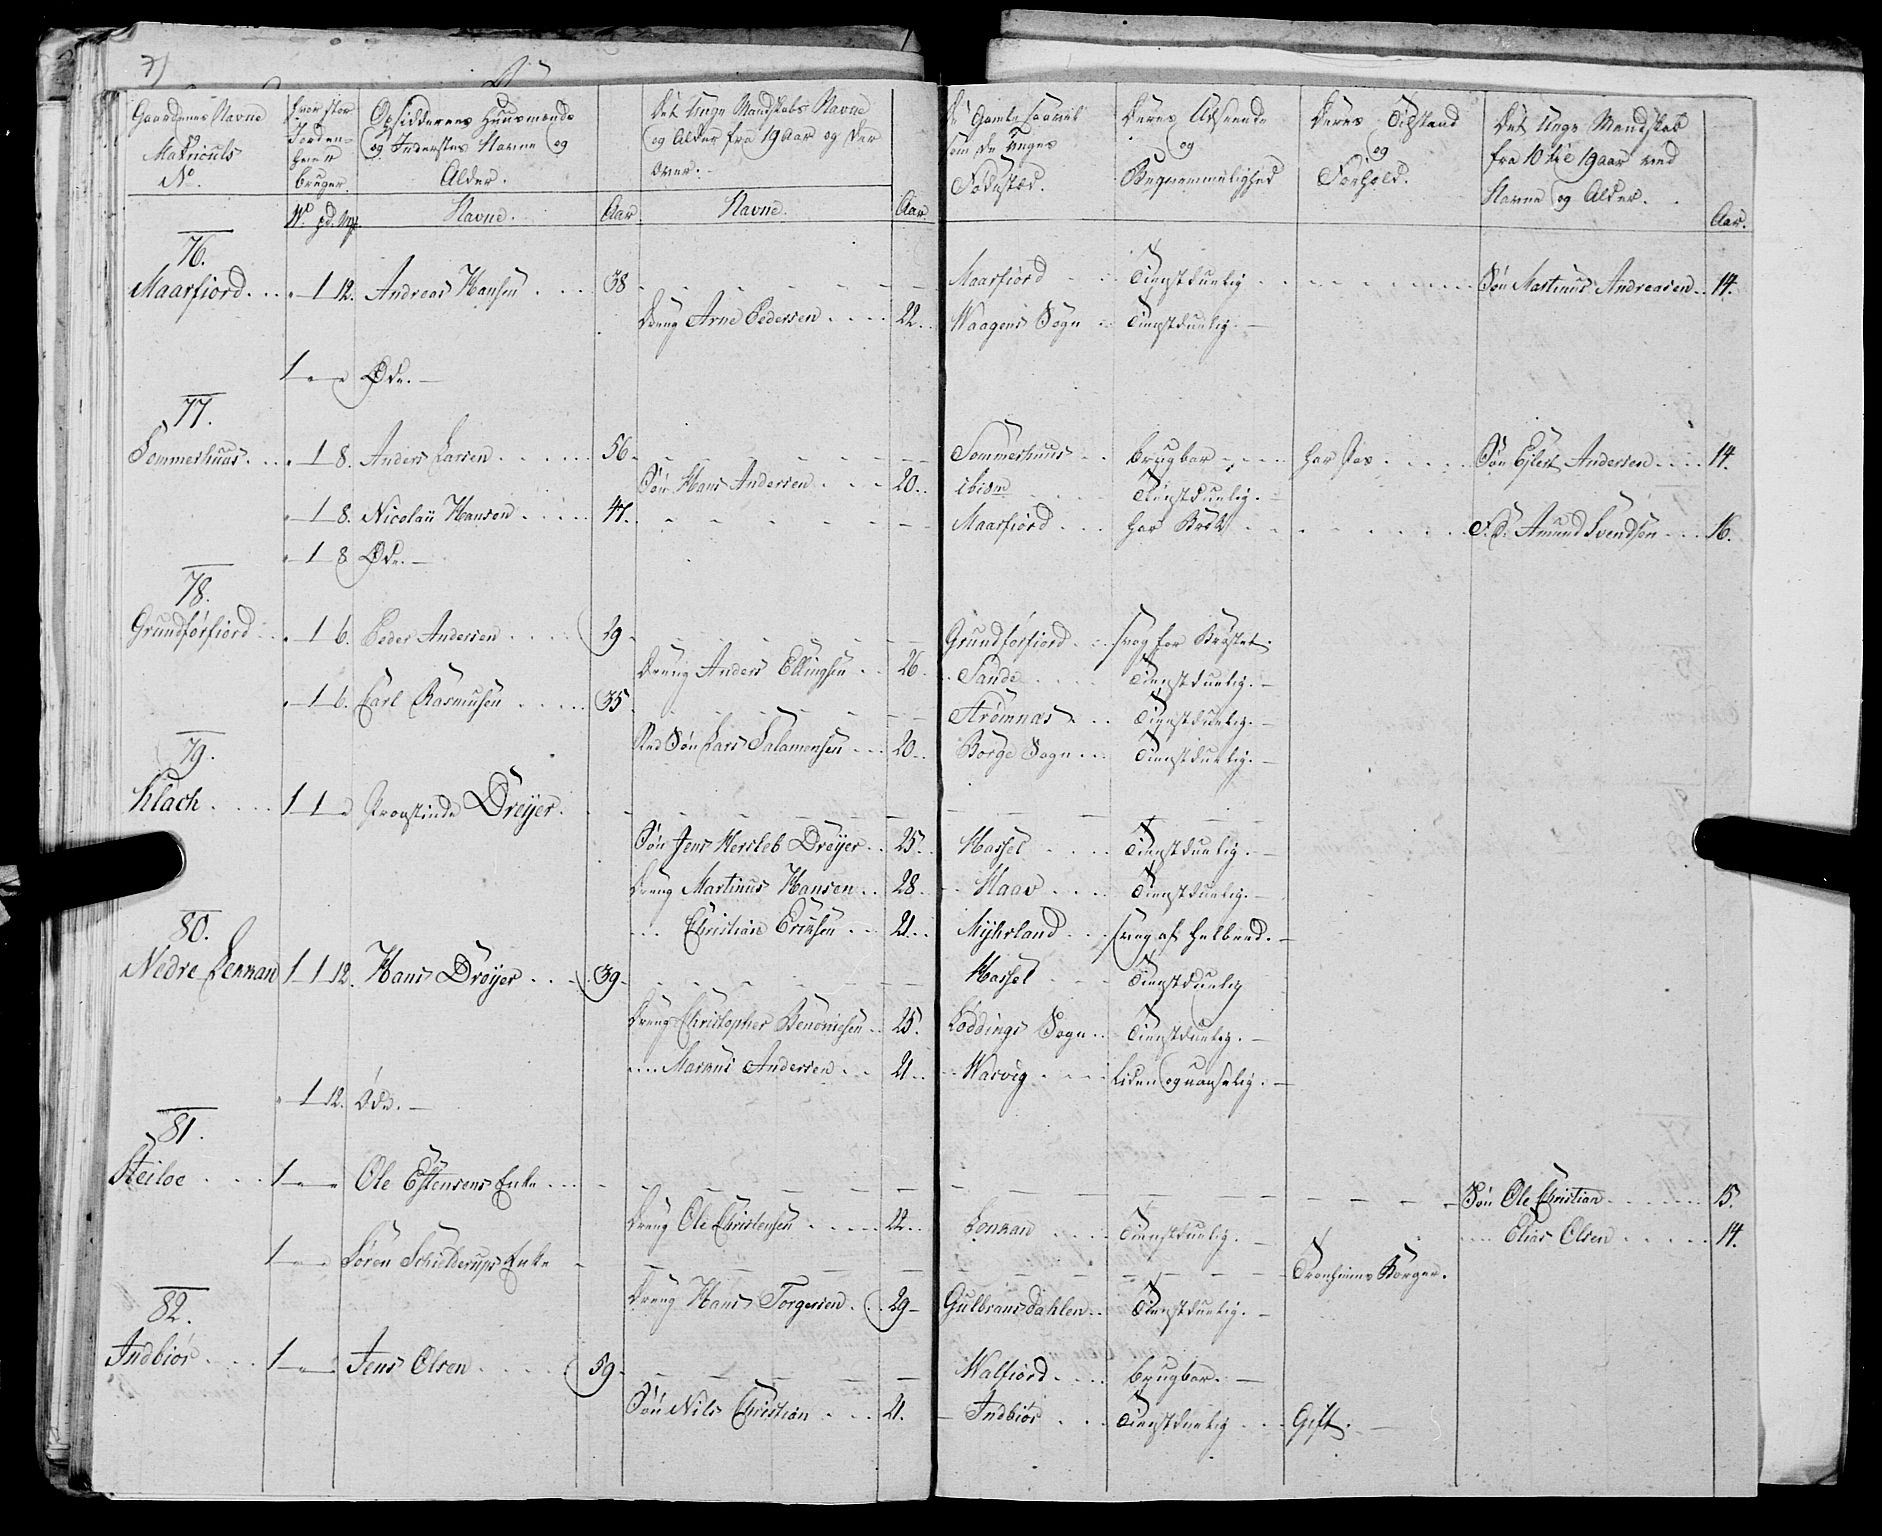 Gaardenes Navne og Matriculs No.
Hvor stor Jorden hver bruger.
Opsiddernes Huusmænds og Inderstes Navne og Alder.
Det Unge Mandskabs Navne og Alder fra 19 Aar og der over.
De Gamle saavel som de Unges Fødested.
Deres Udseende og Beqvemmelighed
Deres Tilstand og Forhold.
Det Unge Mandskab fra 10 til 19 aar ved Navne og Alder.
No. pd. Mk. Navne. Aar Navne. Aar. Aar.
76.
Maarfiord . . . 1 12. Andreas Hansen . . . . 38 Maarfiord Tienstduelig Søn Martinus Andreasen . . 14.
Dreng Arne Pedersen . . . . 22. Waagens Sogn Tienstduelig.
1 „ „ Øde.
77.
Sommerhuus . . . 1 8. Anders Larsen . . . . . 56. Sommerhuus Brugbar har Søn Ejlert Andersen . . . . 14.
Søn Hans Andersen . . . 20. ibidm Tienstduelig.
„ 1 8. Nicolaii Hansen . . . . 47. Maarfiord . . . har Brok F. S. Amund Svendsen . . . 16.
„ 1 8 Øde.
78.
Grundførfiord „ 1 6. Peder Andersen . . . . 29 Grundførfiord . . . svag for Brøstet.
Dreng Anders Ellingsen . . 26 Sande . . . . Tienstduelig.
„ 1 6. Carl Rasmusen . . . . . 35 Strømnæs . . . Tienstduelig.
Sted Søn Lars Salamonsen . . . 20. Borge Sogn . . . Tienstduelig.
79.
Klack . . . . 1 1 „ Provstinde Dreÿer.
Søn Jens Hersleb Dreÿer . . 25. Hassel . . . . Tienstduelig.
Dreng Martinus Hansen . . 28 Haav . . . . Tienstduelig.
. . . Christian Eriksen . . . 21. Mÿhrland . . . svag af Helbred.
80.
Nedre Lennan 1 1 12. Hans Dreÿer . . . . 39 Hassel Tienstduelig
Dreng Christopher Benonisen . . 25. Loddings Sogn . . Tienstduelig.
. . . . Markus Andersen . . 21. Warvig . . . . liden og uanselig.
„ 1 12. Øde.
81.
Steiloe . . . . 1 „ „ Ole Estensens Enke . . . Søn Ole Christian . . . . . . 15.
Dreng Ole Christensen . . . . 22. Lennan . . . . Tienstduelig. . . . . Elias Olsen . . . . . 14.
1 „ „ Søren Schilderups Enke Tronhiems Borger.
Dreng Hans Torgersen . . . 29 Gulbransdahlen . . Tienstduelig.
82.
Indbiør . . . . 1 „ „ Jens Olsen . . . . 59 Walfiord . . . . brugbar.
Søn Nils Christian . . . . 21. Indbiør . . . Tienstduelig . . . Gift.